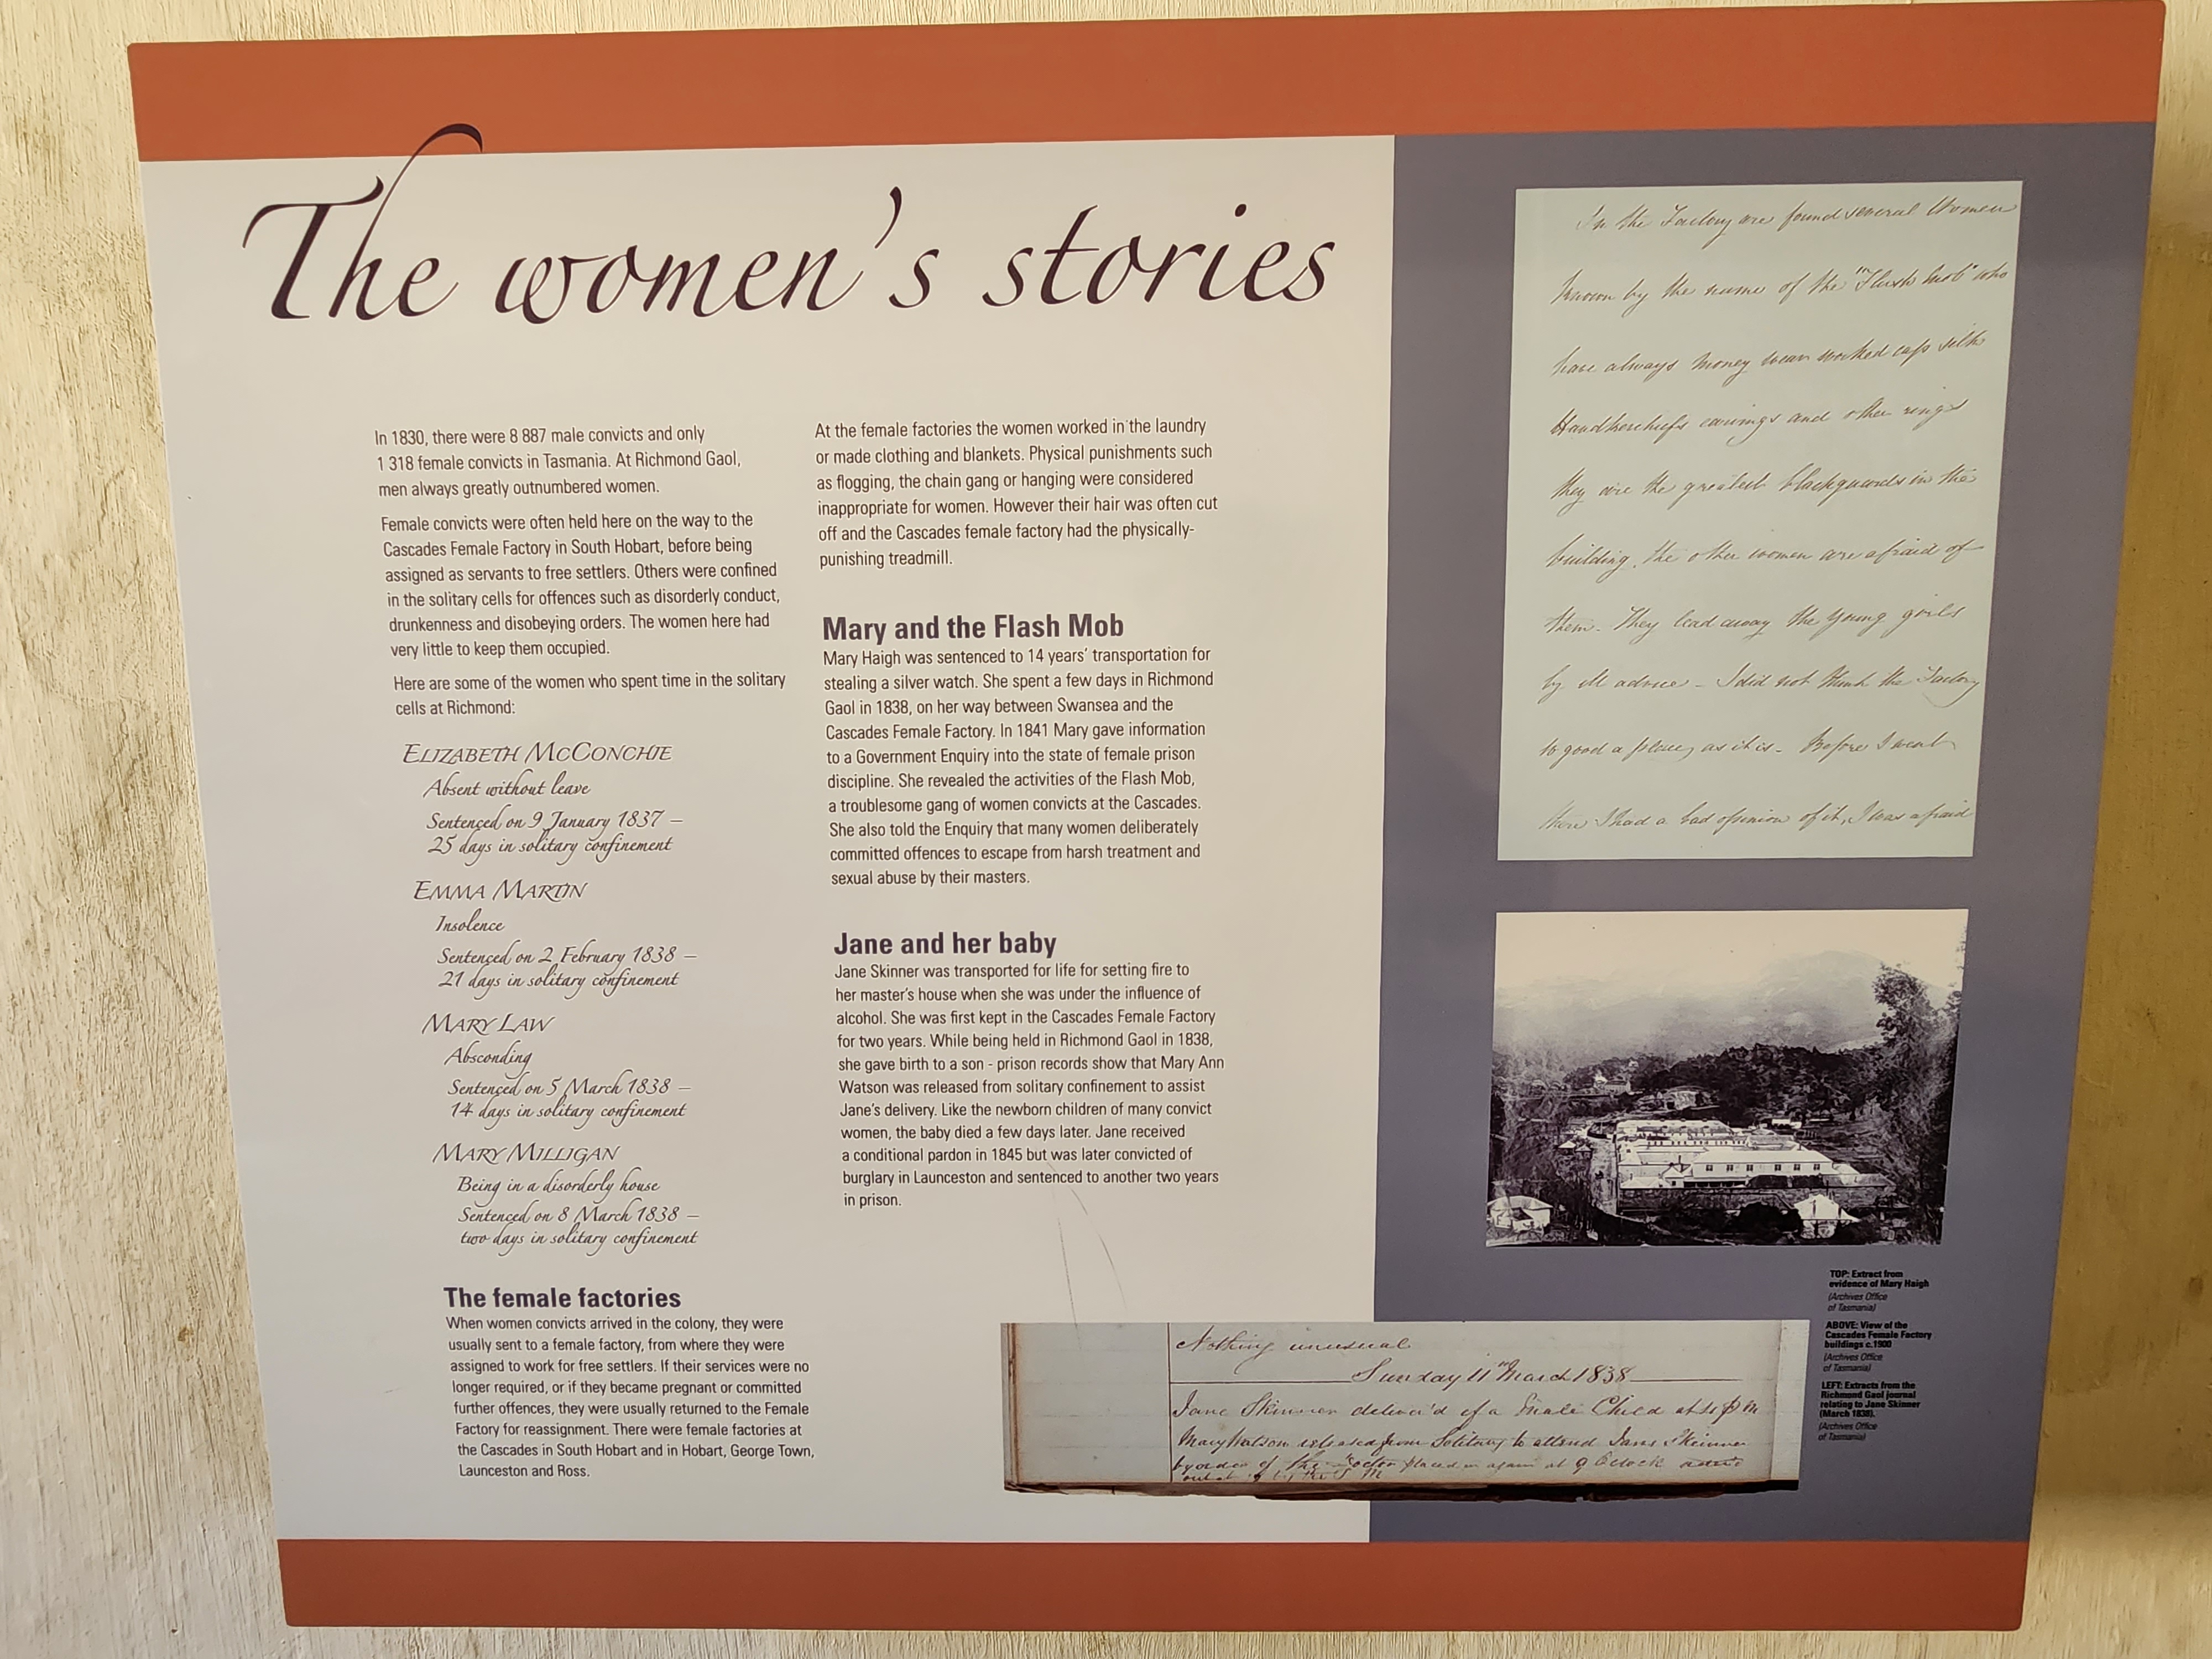 The women's stories
In 1830, there were 8 887 male convicts and only
1 318 female convicts in Tasmania. At Richmond Gaol,
men always greatly outnumbered women.
Female convicts were often held here on the way to the
Cascades Female Factory in South Hobart, before being
assigned as servants to free settlers. Others were confined
in the solitary cells for offences such as disorderly conduct,
drunkenness and disobeying orders. The women here had
very little to keep them occupied.
Here are some of the women who spent time in the solitary
cells at Richmond:
ELIZABETH MCCONCHIE
Absent without leave
Sentenced on 9 January 1837 –
25 days in solitary confinement
EMMA MARTIN
Insolence
Sentenced on 2 February 1838 –
21 days in solitary confinement
MARY LAW
Absconding
Sentenced on 5 March 1838 –
14 days in solitary confinement
MARY MILLIGAN
Being in a disorderly house
Sentenced on 8 March 1838 –
two days in solitary confinement
The female factories
When women convicts arrived in the colony, they were
usually sent to a female factory, from where they were
assigned to work for free settlers. If their services were no
longer required, or if they became pregnant or committed
further offences, they were usually returned to the Female
Factory for reassignment. There were female factories at
the Cascades in South Hobart and in Hobart, George Town,
Launceston and Ross.
At the female factories the women worked in the laundry
or made clothing and blankets. Physical punishments such
as flogging, the chain gang or hanging were considered
inappropriate for women. However their hair was often cut
off and the Cascades female factory had the physically-
punishing treadmill.
Mary and the Flash Mob
Mary Haigh was sentenced to 14 years' transportation for
stealing a silver watch. She spent a few days in Richmond
Gaol in 1838, on her way between Swansea and the
Cascades Female Factory. In 1841 Mary gave information
to a Government Enquiry into the state of female prison
discipline. She revealed the activities of the Flash Mob,
a troublesome gang of women convicts at the Cascades.
She also told the Enquiry that many women deliberately
committed offences to escape from harsh treatment and
sexual abuse by their masters.
Jane and her baby
Jane Skinner was transported for life for setting fire to
her master's house when she was under the influence of
alcohol. She was first kept in the Cascades Female Factory
for two years. While being held in Richmond Gaol in 1838,
she gave birth to a son - prison records show that Mary Ann
Watson was released from solitary confinement to assist
Jane's delivery. Like the newborn children of many convict
women, the baby died a few days later. Jane received
a conditional pardon in 1845 but was later convicted of
burglary in Launceston and sentenced to another two years
in prison.
In the Factory are found several Women
known by the name of the "Flash Mob" who
have always money wear worked caps silk
Handkerchiefs earrings and other rings
they are the greatest blackguards in the
building, the other women are afraid of
them. They lead away the young girls
by ill advice – I did not think the Factory
so good a place, as it is – Before I went
there I had a bad opinion of it, I was afraid
Nothing unusual
Sunday 11th March 1838
Jane Skinner deliver'd of a Male Child at
Mary Watson released from Solitary to attend Jane Skinner
by order of the Doctor placed in again at 9 O'Clock
TOP: Extract from
evidence of Mary Haigh
(Archives Office
of Tasmania)
ABOVE: View of the
Cascades Female Factory
buildings c.1900
(Archives Office
of Tasmania)
LEFT: Extracts from the
Richmond Gaol journal
relating to Jane Skinner
(March 1838).
(Archives Office
of Tasmania)